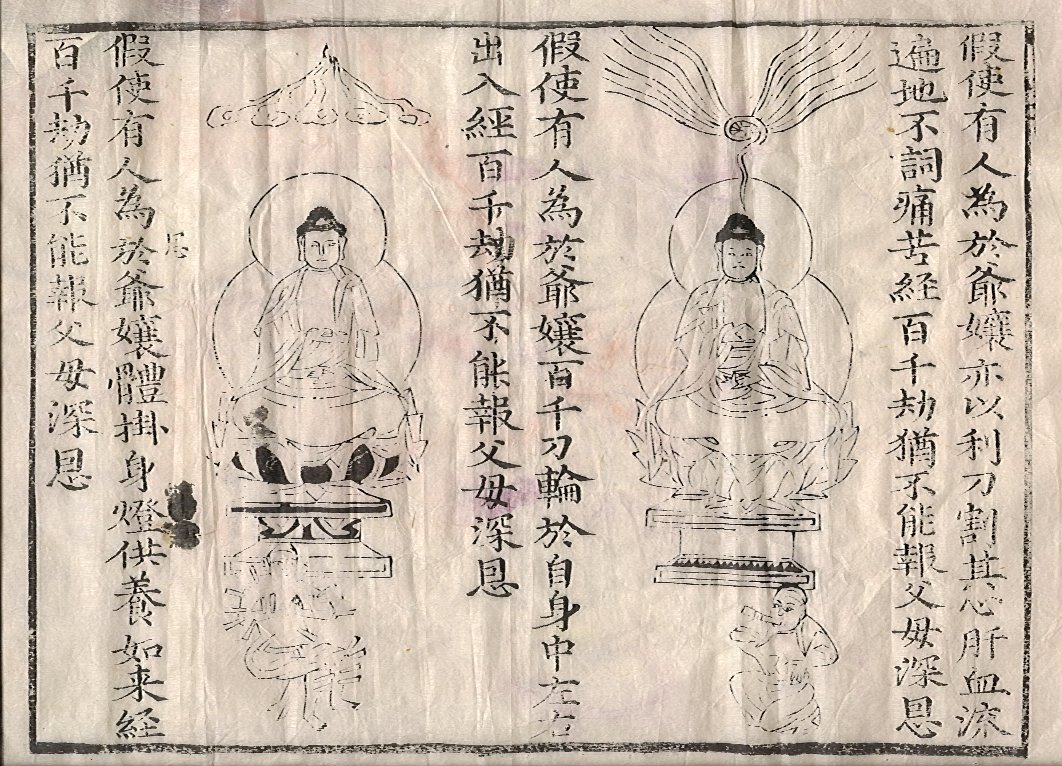 假使有人為於爺孃亦以利刀割其心肝血流
遍地不詞痛苦經百千劫猶不能報父母深恩
假使有人為於爺孃百千刀輪於自身中左右
出入經百千劫猶不能報父母深恩
假使有人為於爺孃體掛身燈供養如来經
百千劫猶不能報父母深恩